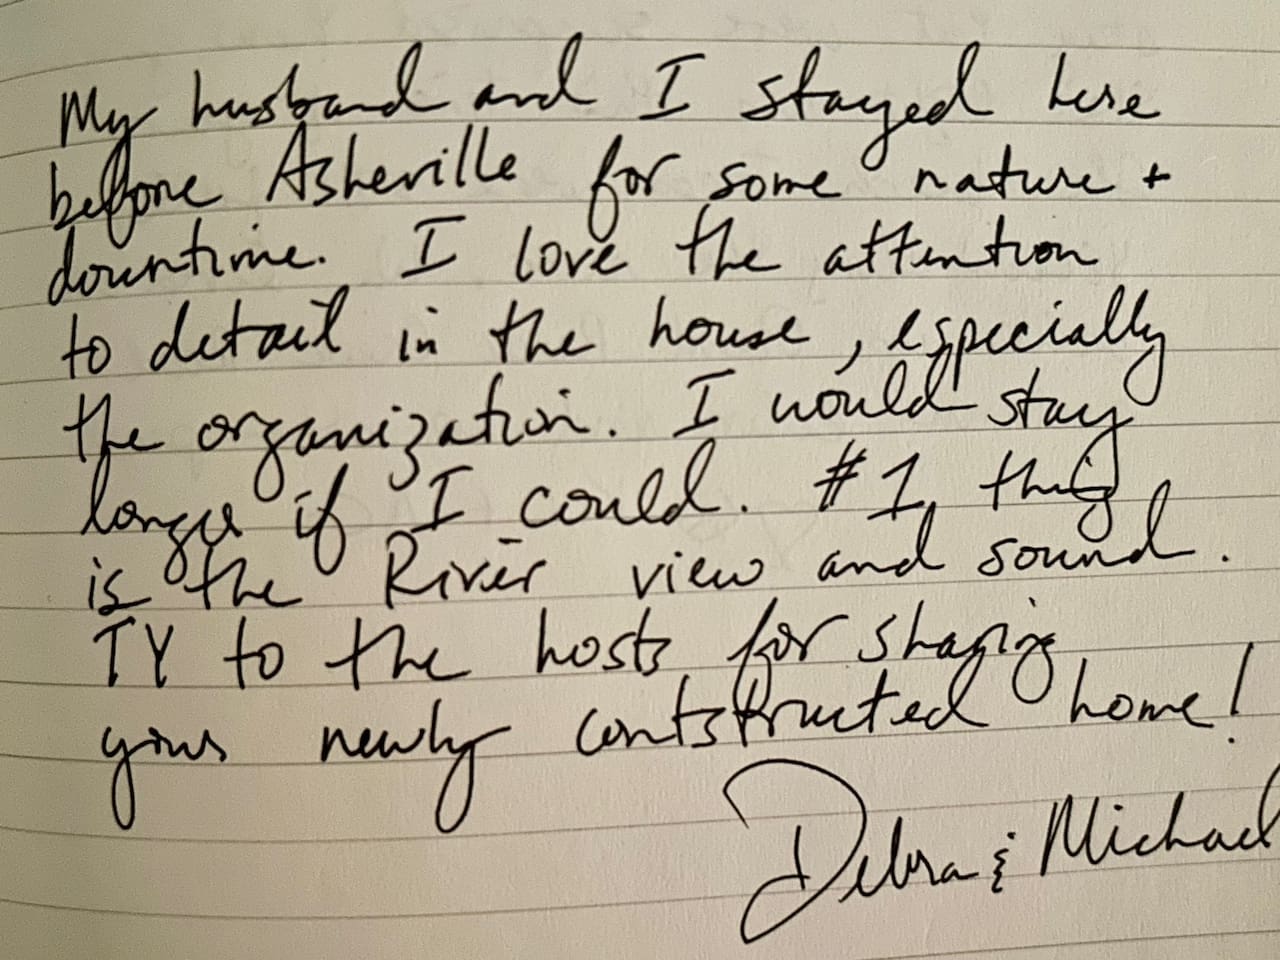 My husband and I stayed here
before Asheville for some nature +
downtime. I love the attention
to detail in the house, especially
the organization. I would stay
longer if I could. #1 thing
is the River view and sound.
TY to the hosts for sharing
your newly contstructed home!
Debra & Michael